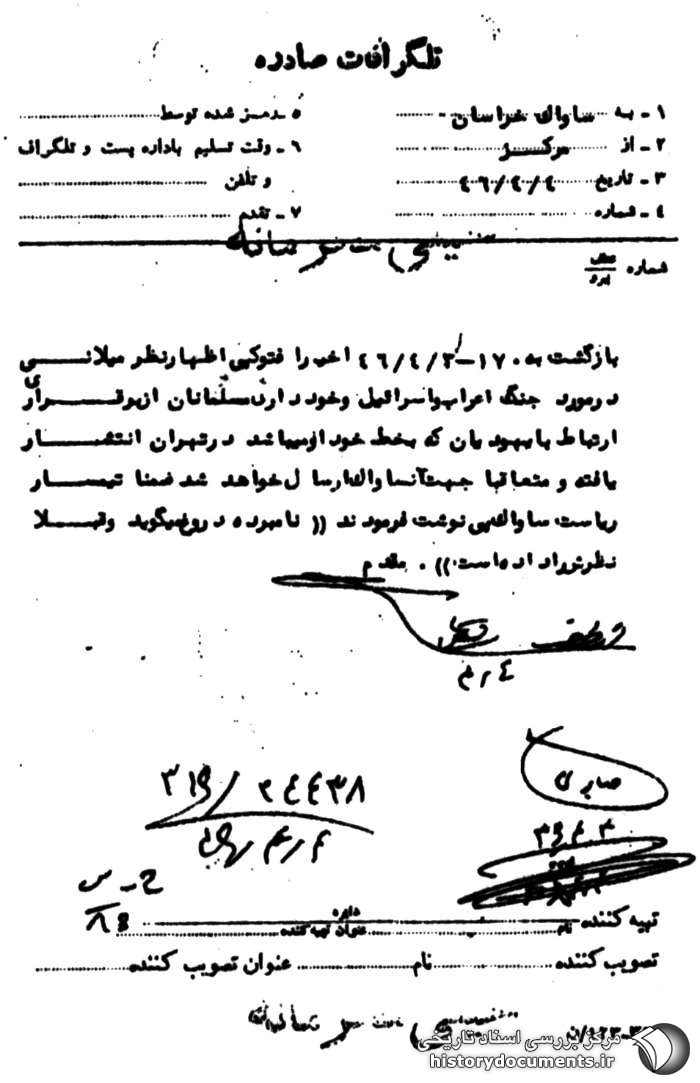 تلگرافات صادره
۱ - به ساواك خراسان
۲ - از مركــز
۳ - تاریخ ٤٦/٤/٤
٤ - شماره
۵ - رمز شده توسط
٦ - وقت تسلیم باداره پست و تلگراف
و تلفن
۷ - تقدم
شماره
بازگشت به ۱۷۰ - ٤٦/٤/۳ اخیرا فتوکپی اظهارنظر میلانــی
درمورد جنگ اعراب واسرائیل وخودداری مسلمانان ازبرقــرار
ارتباط با یهودیان که بخط خود اومیباشد درتهران انتشــار
یافته و متعاقبا جهت آنساواك ارسال خواهد شد ضمنا تیمســار
ریاست ساواك پی نوشت فرمودند (( نامبرده دروغ میگوید وقبــلا
نظرش را داده است )) . مقدم
٤ ر ۴
صابری
۳۱۶/۲٤٤۳۸
تهیه کننده
نام
عنوان تهیه کننده
دایره
تصویب کننده
نام
عنوان تصویب کننده
مرکز بررسی اسناد تاریخی
historydocuments.ir